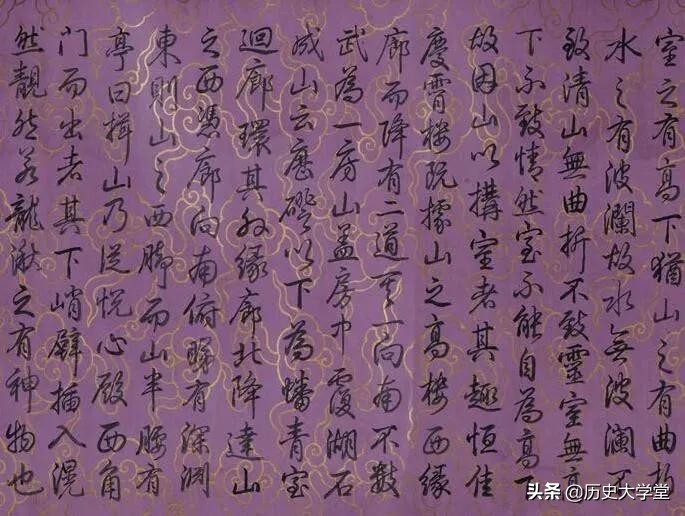 室之有高下猶山之有曲折
水之有波瀾故水無波瀾不
致清山無曲折不致靈室無高
下不致情然室不能自為高下
故因山以構室者其趣恒佳
慶霄樓既據山之高樓西緣
廊而降有二道其一向南不數
武為一房山蓋房中覆湖石
成山云歷磴以下為蟠青室
迴廊環其外緣廊北降達山
之西憑廊向南俯睇有深淵
東則山之西脚而山半腰有
亭曰揖山乃從悅心殿西角
門而出者其下峭壁插入滉
然靚然若龍湫之有神物也
头条 @历史大学堂